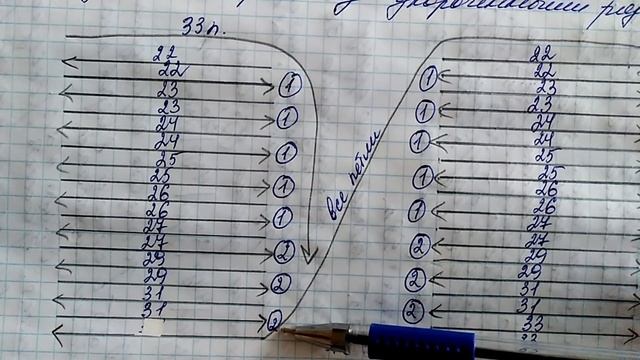 укороченными
33п.
22
22
1
23
23
1
24
24
1
25
25
1
26
26
1
27
27
2
29
29
2
31
31
2
все петли
22
1
22
23
1
23
24
1
24
25
1
25
26
1
26
27
2
27
29
2
29
31
2
31
33